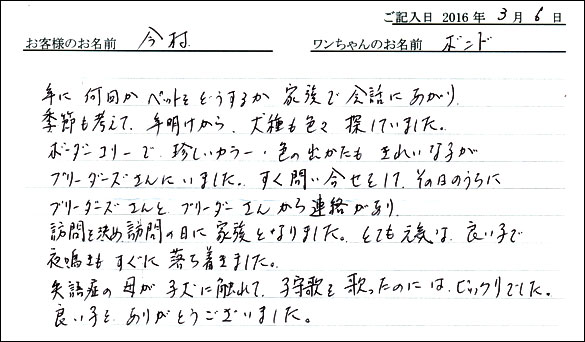 ご記入日 2016 年 3 月 6 日
お客様のお名前 今村 ワンちゃんのお名前 ボンド
年に 何回か ペットを どうするか 家族で 会話に あがり
季節も考えて、年明けから、犬種も色々 探していました。
ボーダーコリーで、珍しいカラー・色の出かたも きれいな子が
ブリーダーズさんにいました。すぐ問い合せをして、その日のうちに
ブリーダーズさんと、ブリーダーさんから連絡があり、
訪問を決め、訪問の日に家族となりました。とても元気な、良い子で
夜鳴きも すぐに 落ち着きました。
失語症の母が 子犬に触れて、子守歌を 歌ったのには、ビックリでした。
良い子を ありがとうございました。